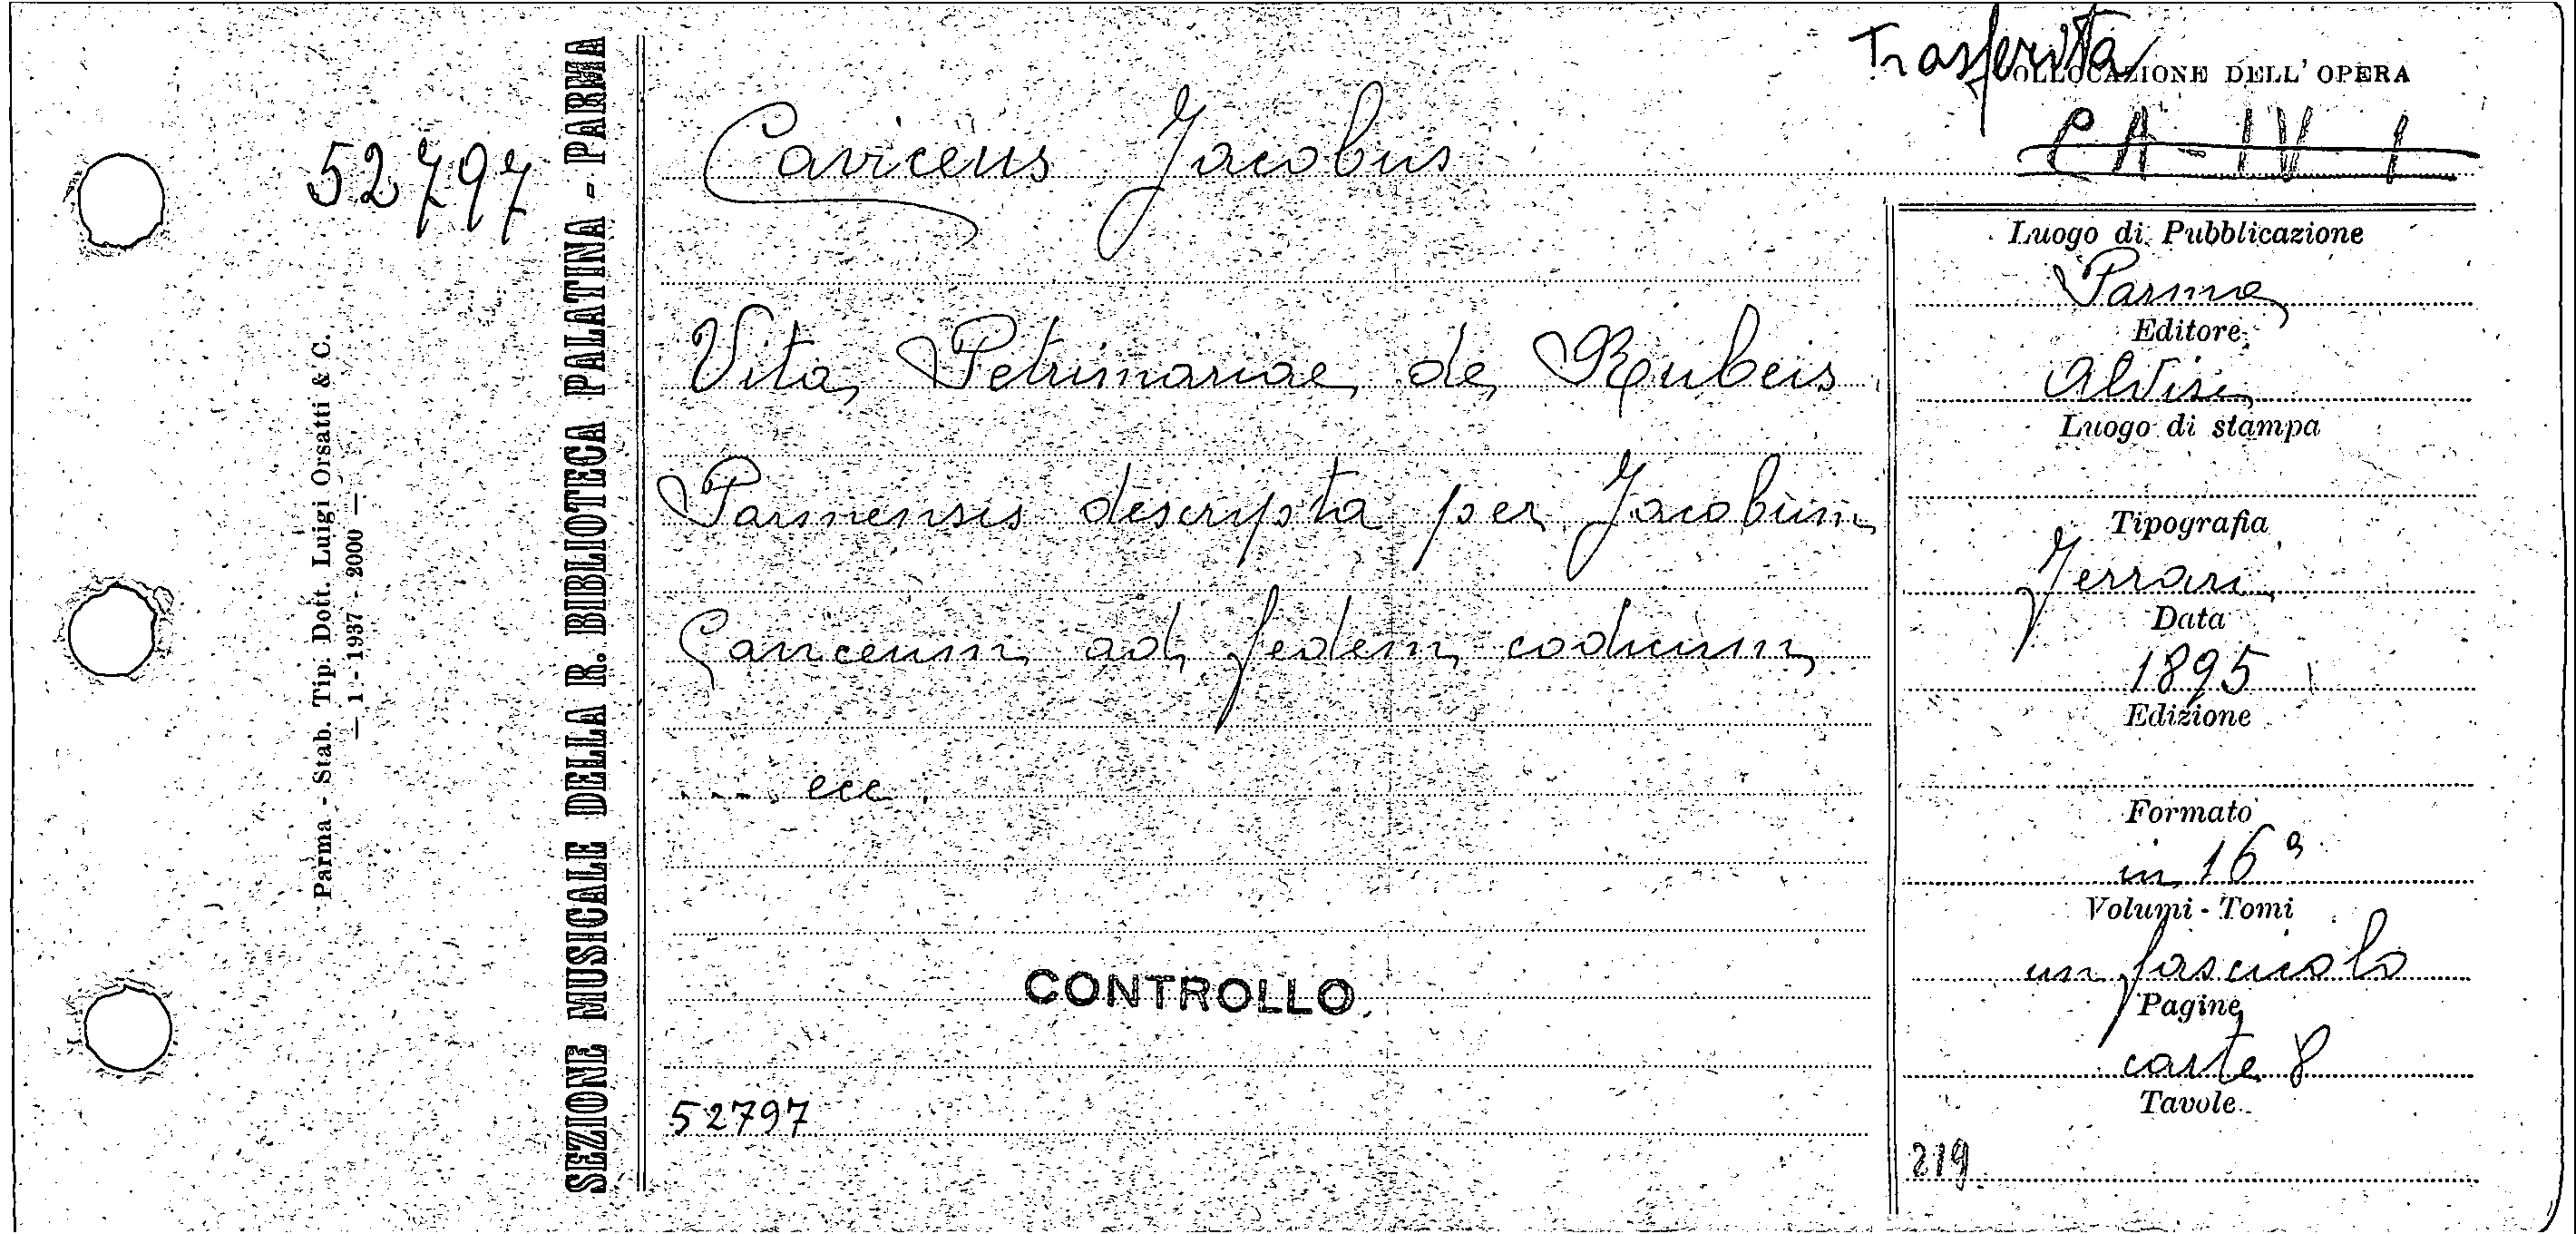 Trasferita
COLLOCAZIONE DELL' OPERA
CA - IV - 1
52797
Caviceus Jacobus
Vita Petrimariae de Rubeis
Parmensis descripta per Jacobum
Caviceum ad fedem codicum
..... ecc.
CONTROLLO
52797
Luogo di Pubblicazione
Parma
Editore
Alvisi
Luogo di stampa
Tipografia
Ferrari
Data
1895
Edizione
Formato
in 16°
Volumi - Tomi
un fascicolo
Pagine
carte 8
Tavole
219
SEZIONE MUSICALE DELLA R. BIBLIOTECA PALATINA - PARMA
Parma - Stab. Tip. Dott. Luigi Orsatti & C.
— 1 - 1937 - 2000 —